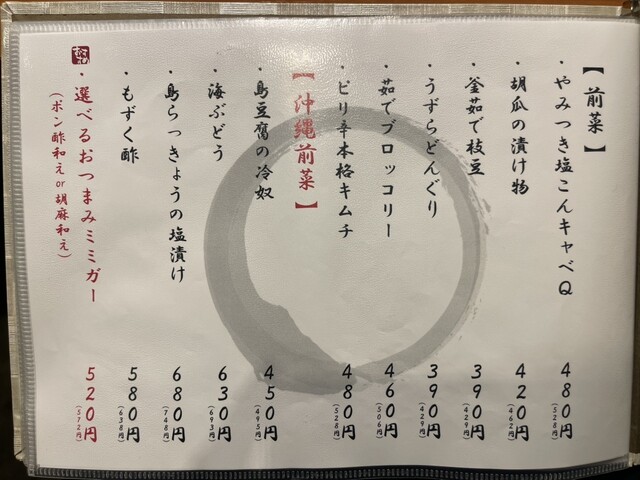 【前菜】
・やみつき塩こんキャベQ 480円(528円)
・胡瓜の漬け物 420円(462円)
・釜茹で枝豆 390円(429円)
・うずらどんぐり 390円(429円)
・茹でブロッコリー 460円(506円)
・ピリ辛本格キムチ 480円(528円)
【沖縄前菜】
・島豆腐の冷奴 450円(495円)
・海ぶどう 630円(693円)
・島らっきょうの塩漬け 680円(748円)
・もずく酢 580円(638円)
・選べるおつまみミミガー 520円(572円)
(ポン酢和えor胡麻和え)